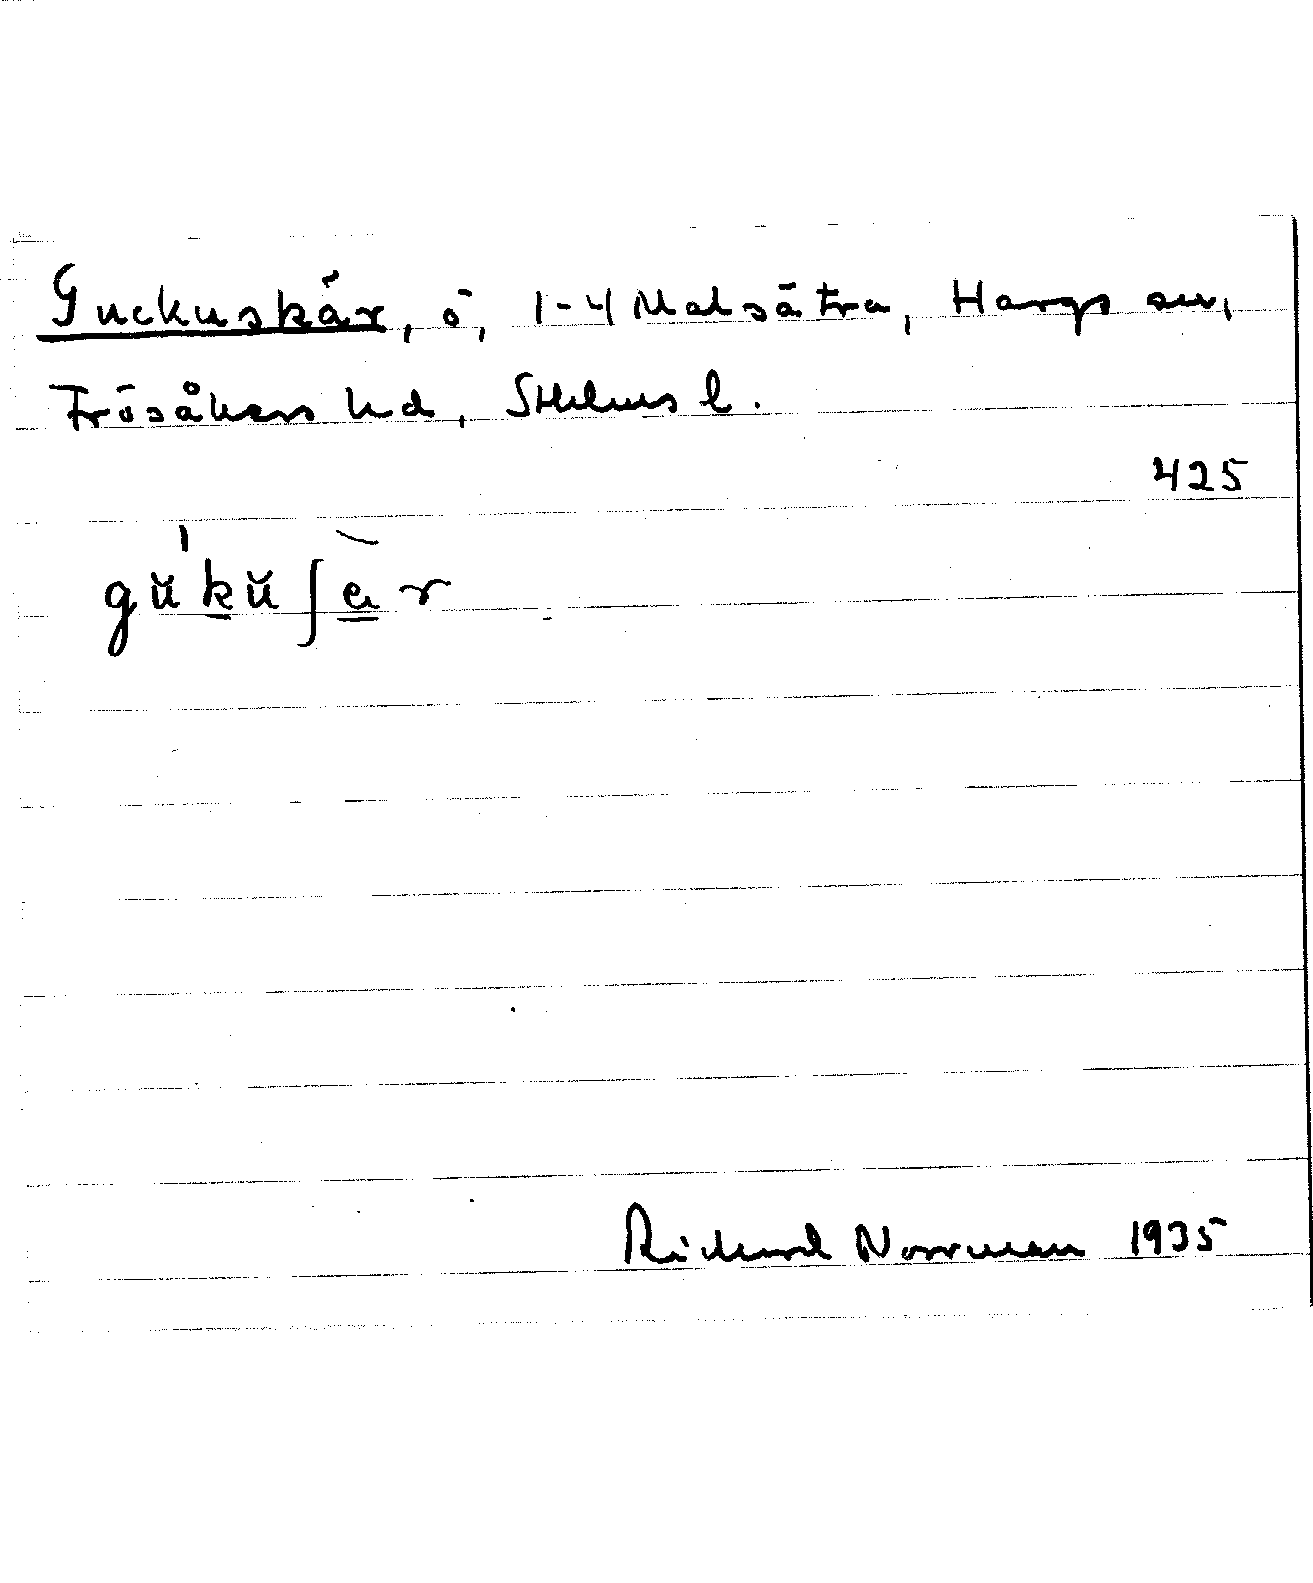 Guckuskär, ö, 1-4 Malsätra, Hargs sn,
Frösåkers hd, Sthlms l.
425
gŭkŭʃär
Richard Norrman 1935